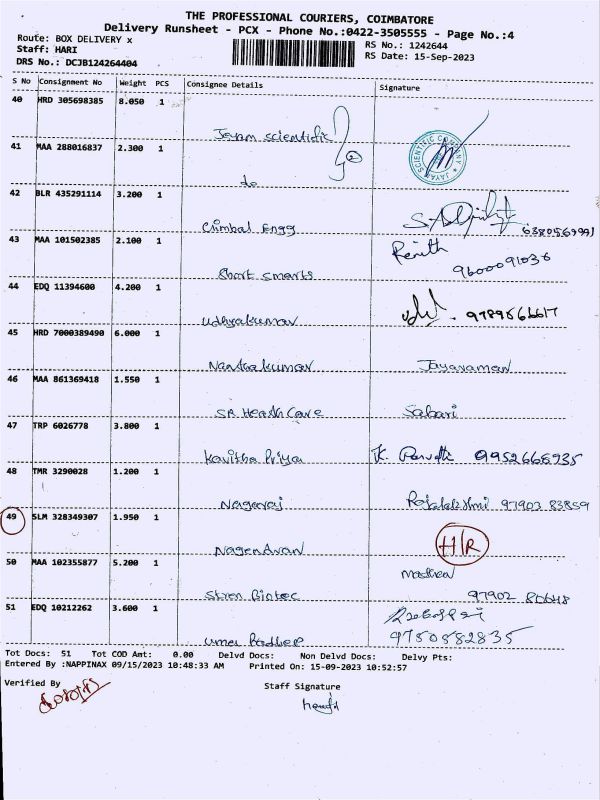 THE PROFESSIONAL COURIERS, COIMBATORE
Delivery Runsheet - PCX - Phone No.:0422-3505555 - Page No.:4
Route: BOX DELIVERY x
RS No.: 1242644
Staff: HARI
RS Date: 15-Sep-2023
DRS No.: DCJB124264404
S No Consignment No Weight PCS Consignee Details Signature
40 HRD 305698385 8.050 1
Jayam scientific
41 MAA 288016837 2.300 1
do
SCIENTIFIC COMPANY
42 BLR 435291114 3.200 1
Climbal Engg
43 MAA 101502385 2.100 1
Renith
Short smarts 9600091036
44 EDQ 11394600 4.200 1
Udhyakumar 9789566617
45 HRD 7000389490 6.000 1
Nanthakumar Jayaraman
46 MAA 861369418 1.550 1
SR Health Care Sabari
47 TRP 6026778 3.800 1
Kavitha Priya K. 9952668935
48 TMR 3290028 1.200 1
Nagaraj Rajalakshmi 97902 83859
49 SLM 328349307 1.950 1
Nagendran H/R
50 MAA 102355877 5.200 1
97902 80648
51 EDQ 10212262 3.600 1
9750582835
Tot Docs: 51 Tot COD Amt: 0.00 Delvd Docs: Non Delvd Docs: Delvy Pts:
Entered By :NAPPINAX 09/15/2023 10:48:33 AM Printed On: 15-09-2023 10:52:57
Verified By
Staff Signature